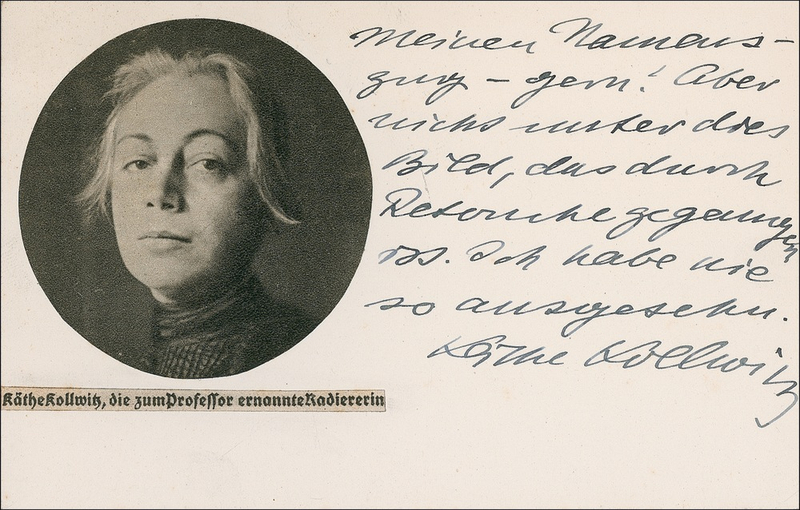 Meinen Namens-
zug – gern! Aber
nicht unter dies
Bild, das durch
Retouche gegangen
ist. Ich habe nie
so ausgesehn.
Käthe Kollwitz
Käthe Kollwitz, die zum Professor ernannte Radiererin